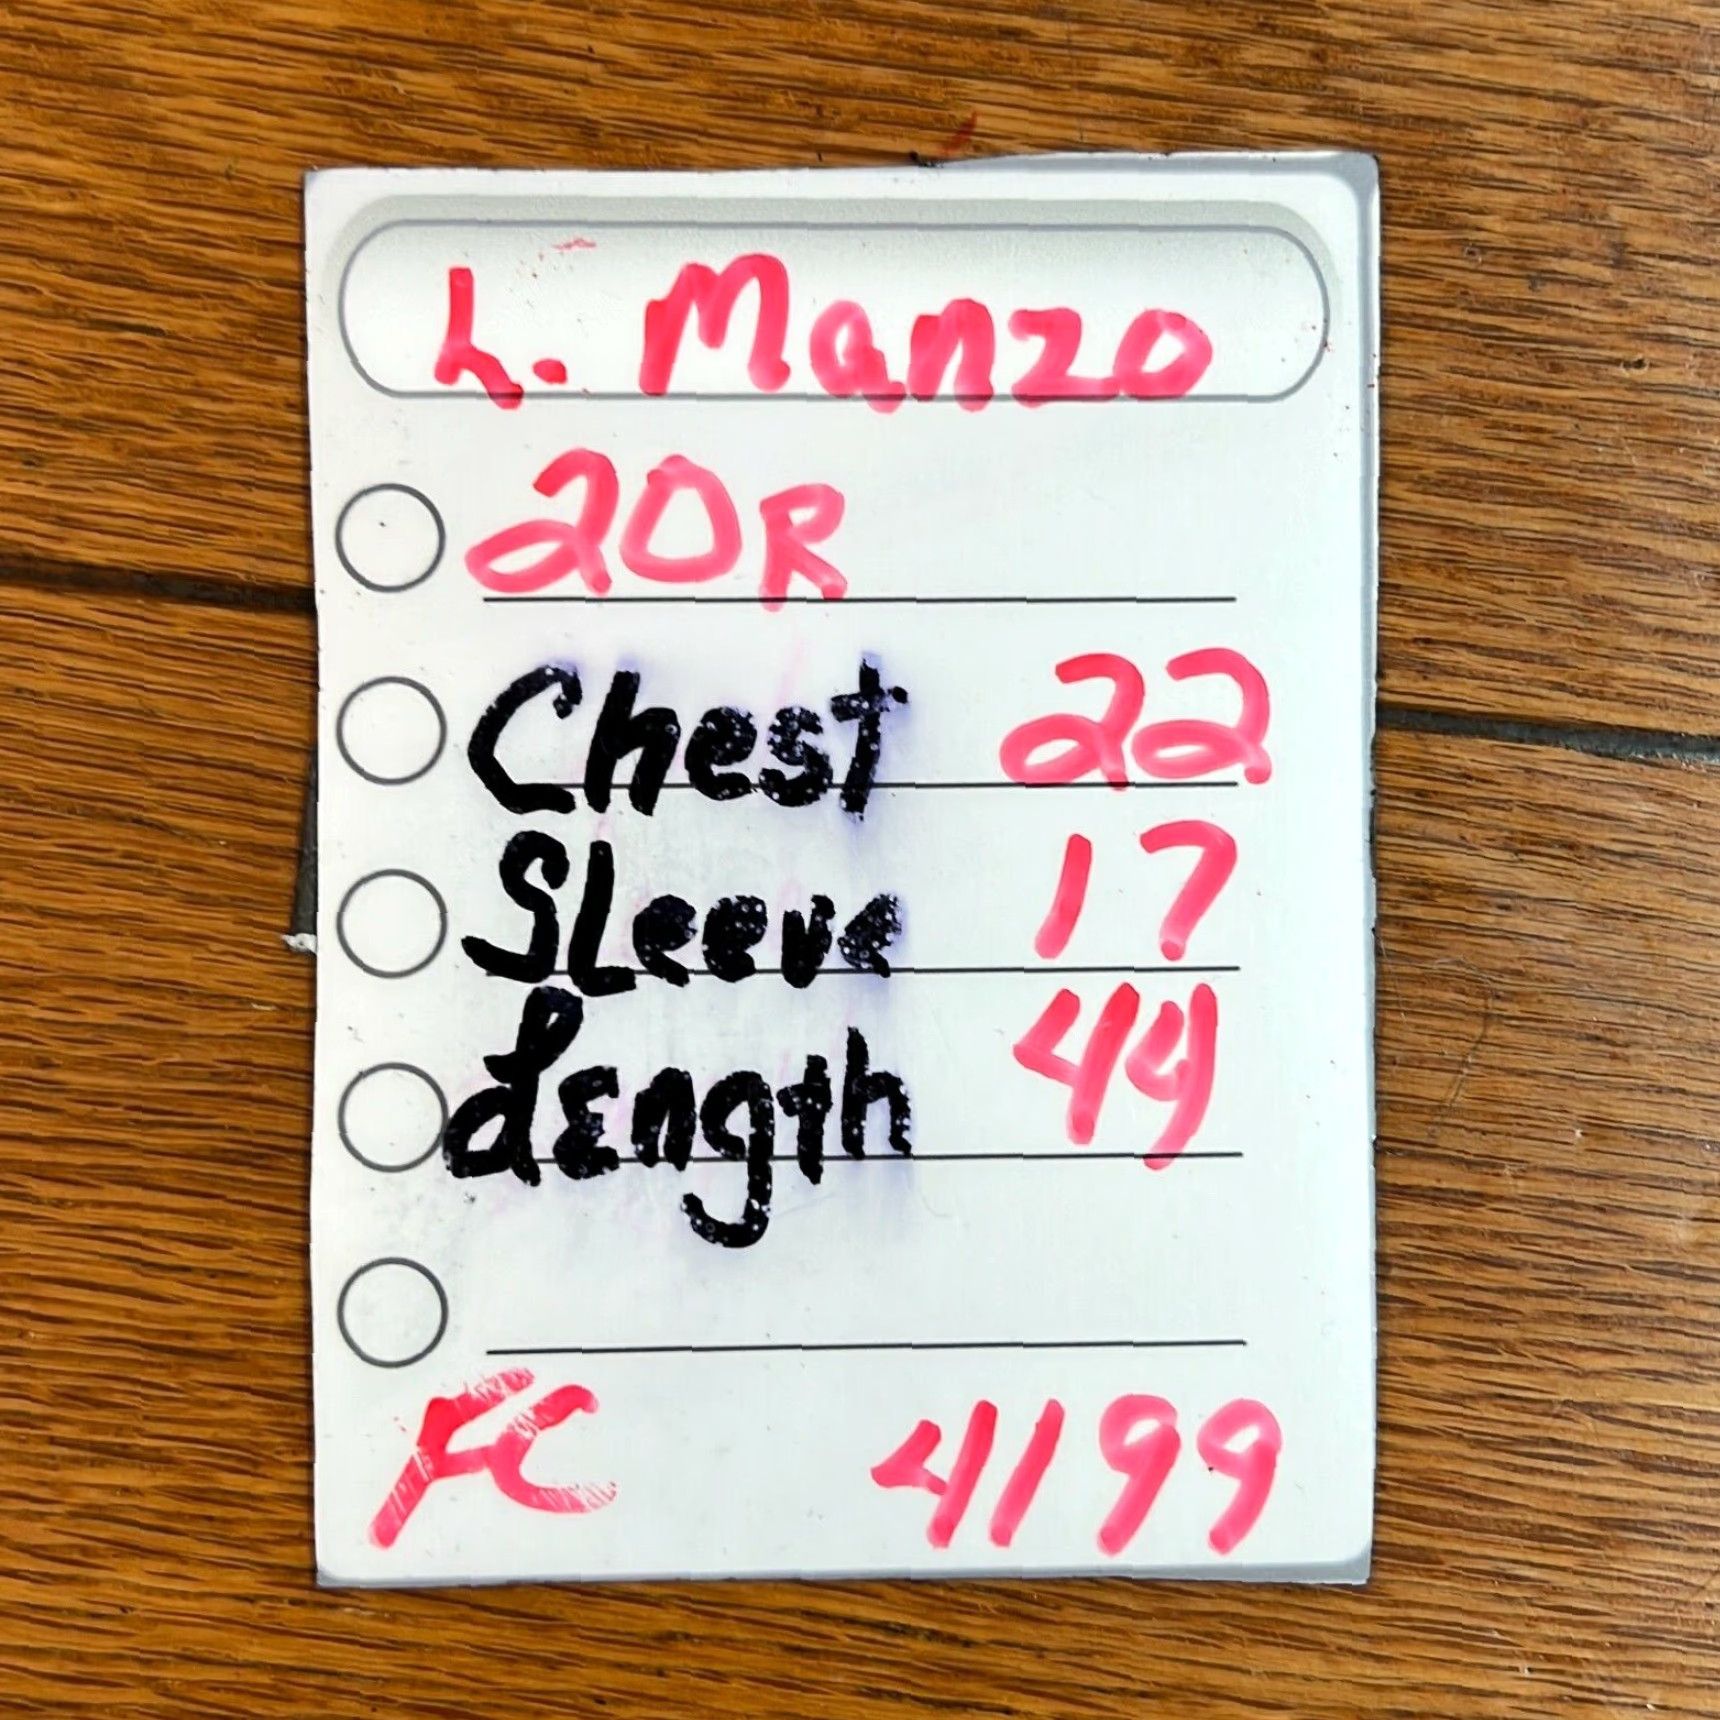 L. Manzo
20R
Chest 22
SLeeve 17
Length 44
FC 4199